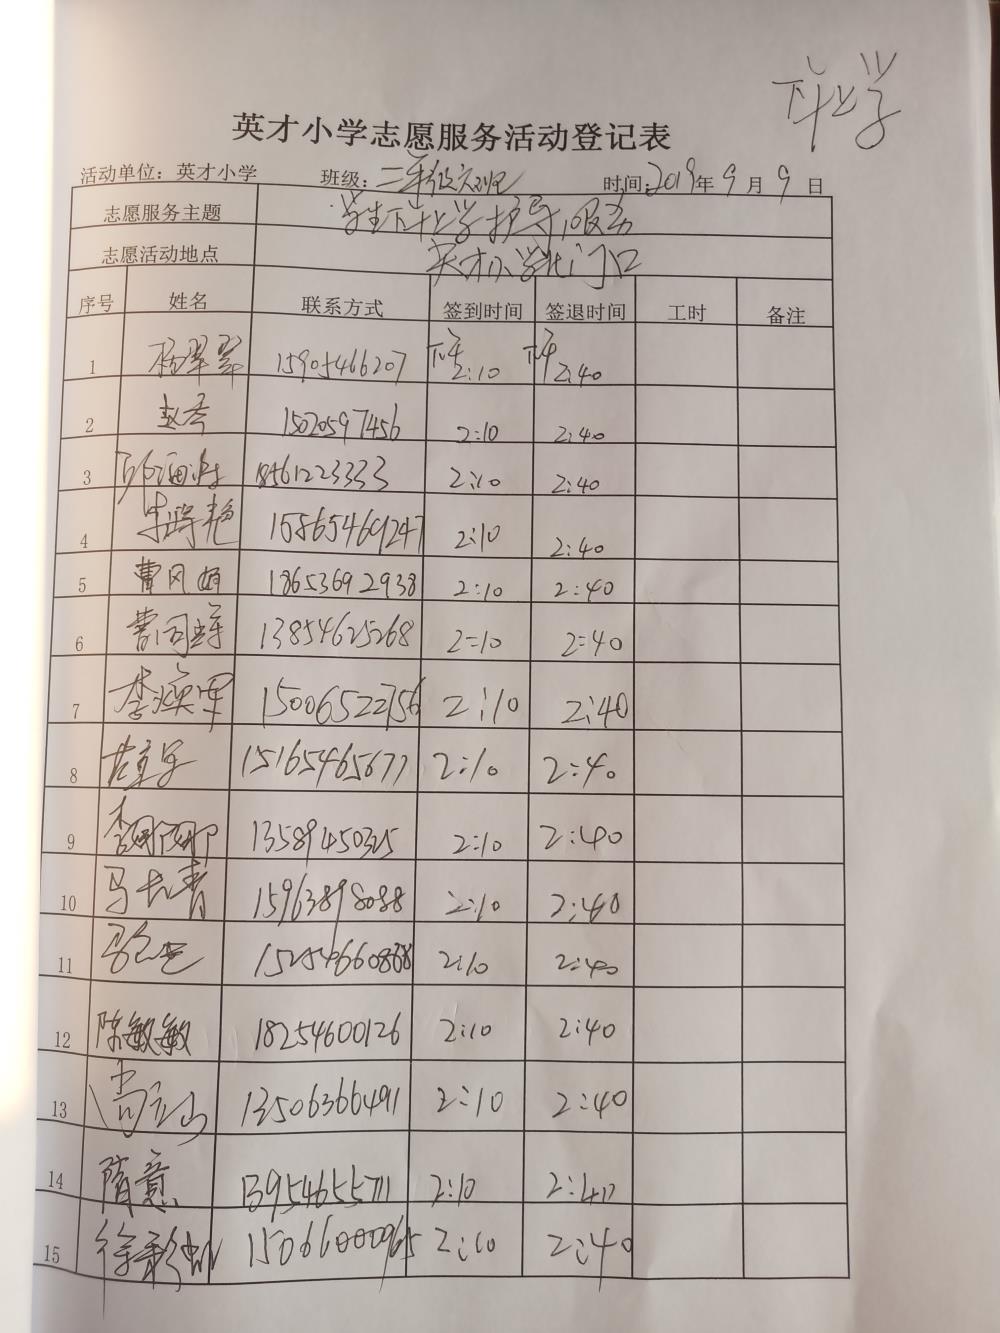 下午上学
英才小学志愿服务活动登记表
活动单位：英才小学 班级：二年级六班 时间：2019年9月9日
志愿服务主题 学生下午上学护导服务
志愿活动地点 英才小学北门口
序号 姓名 联系方式 签到时间 签退时间 工时 备注
1 杨翠翠 15905466207 下午2:10 下午2:40
2 赵秀 15020597456 2:10 2:40
3 18561223333 2:10 2:40
4 15865469247 2:10 2:40
5 曹风娟 18653692938 2:10 2:40
6 曹同辉 13854625268 2:10 2:40
7 李焕军 15006522756 2:10 2:40
8 15165465677 2:10 2:40
9 李娜娜 13589450325 2:10 2:40
10 马长青 15963898088 2:10 2:40
11 2:10 2:40
12 陈敏敏 18254600126 2:10 2:40
13 13506366491 2:10 2:40
14 隋意 13954655711 2:10 2:40
15 徐彩虹 15066000965 2:10 2:40